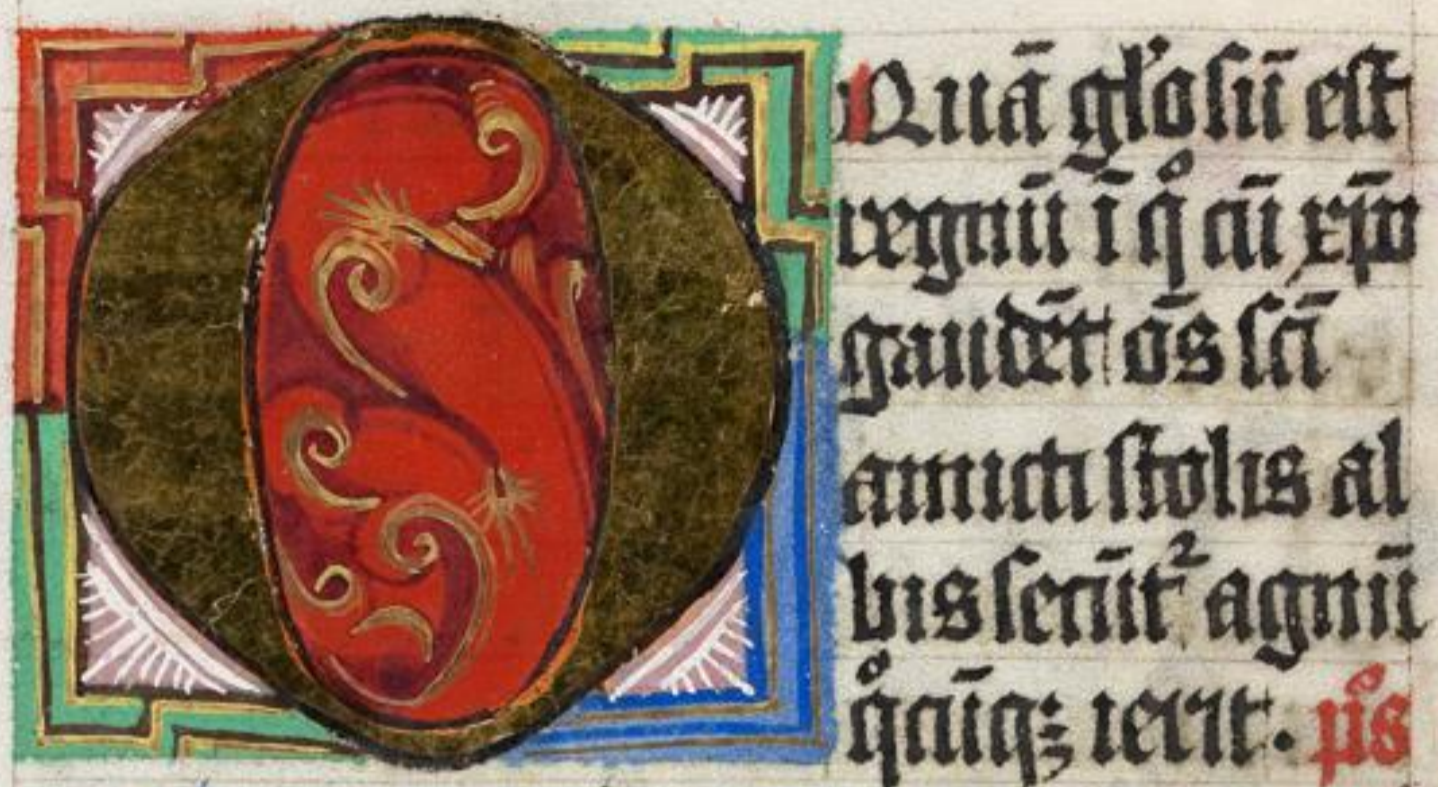 O Quā gl'osū est
regnū ī qͦ cū xp̄o
gaudēt ōs sc̄i
amicti stolis al
bis secūt᷑ agnū
qͦcūqꝫ ierit. p̄s